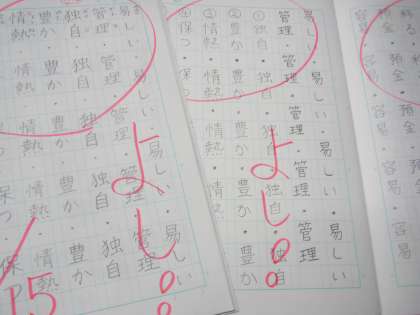 預金・預金
容易・容易
易しい・易しい・易しい・易しい
管理・管理・管理・管理
①独自・独自・独自・独自・独自
②豊か・豊か・豊か・豊か
③情熱・情熱・情熱・情熱
④保つ・保つ
よし
易しい・易しい・易しい・易しい
管理・管理・管理・管理・管理
独自・独自・独自・独自・独自
豊か・豊か・豊か・豊か・豊か
情熱・情熱・情熱・情熱・情熱
保つ・保つ
よし
15